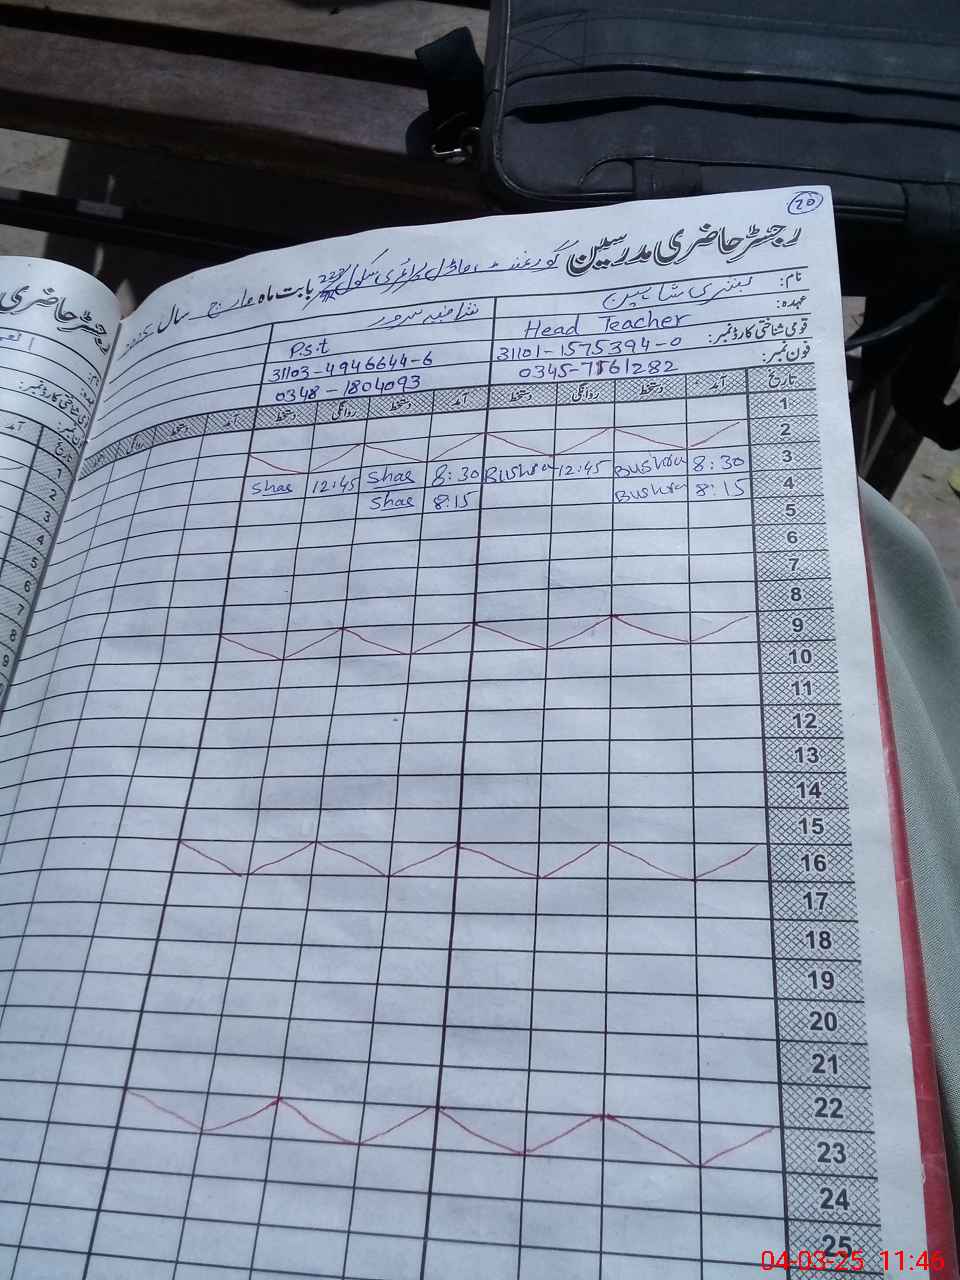 20
رجسٹر حاضری مدرسین گورنمنٹ ماڈل پرائمری سکول بابت ماہ مارچ سال
نام: بشری شاہین
عہدہ: Head Teacher P.s.t
قومی شناختی کارڈ نمبر: 31101-1575394-0 31103-4946644-6
فون نمبر: 0345-7161282 0348-1804093
تاریخ آمد دستخط روانگی دستخط آمد دستخط روانگی دستخط آمد دستخط روانگی
1
2
3 8:30 Bushra 12:45 Bushra 8:30 Shas 12:45 Shas
4 8:15 Bushra 8:15 Shas
5
6
7
8
9
10
11
12
13
14
15
16
17
18
19
20
21
22
23
24
25
رجسٹر حاضری
تاریخ
1
2
3
4
5
6
7
8
9
04-03-25 11:46